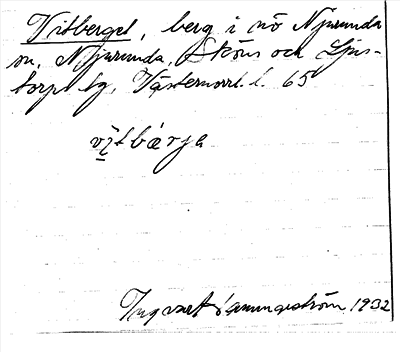 Vitberget, berg i nö Njurunda
sn, Njurunda, Sköns och Ljus-
torps tg, Västernorrl. l. 65
vi̬tbárja
Ingvart 1932